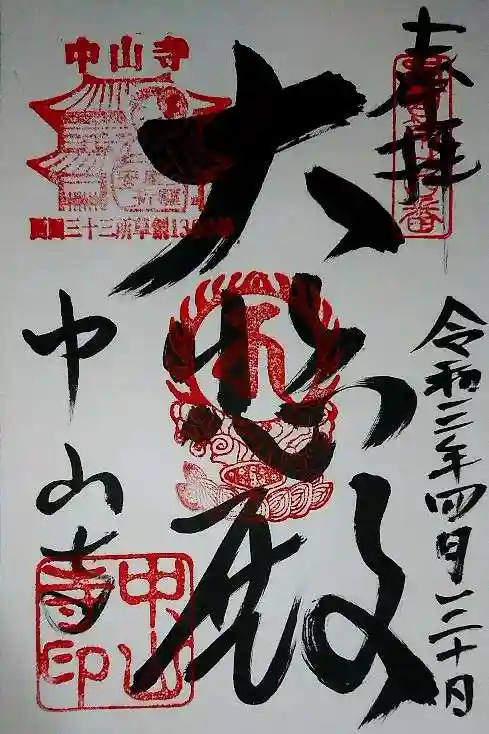 奉拝
令和三年四月二十日
大悲殿
中山寺
中山寺
西国三十三所草創1300年
中山寺印